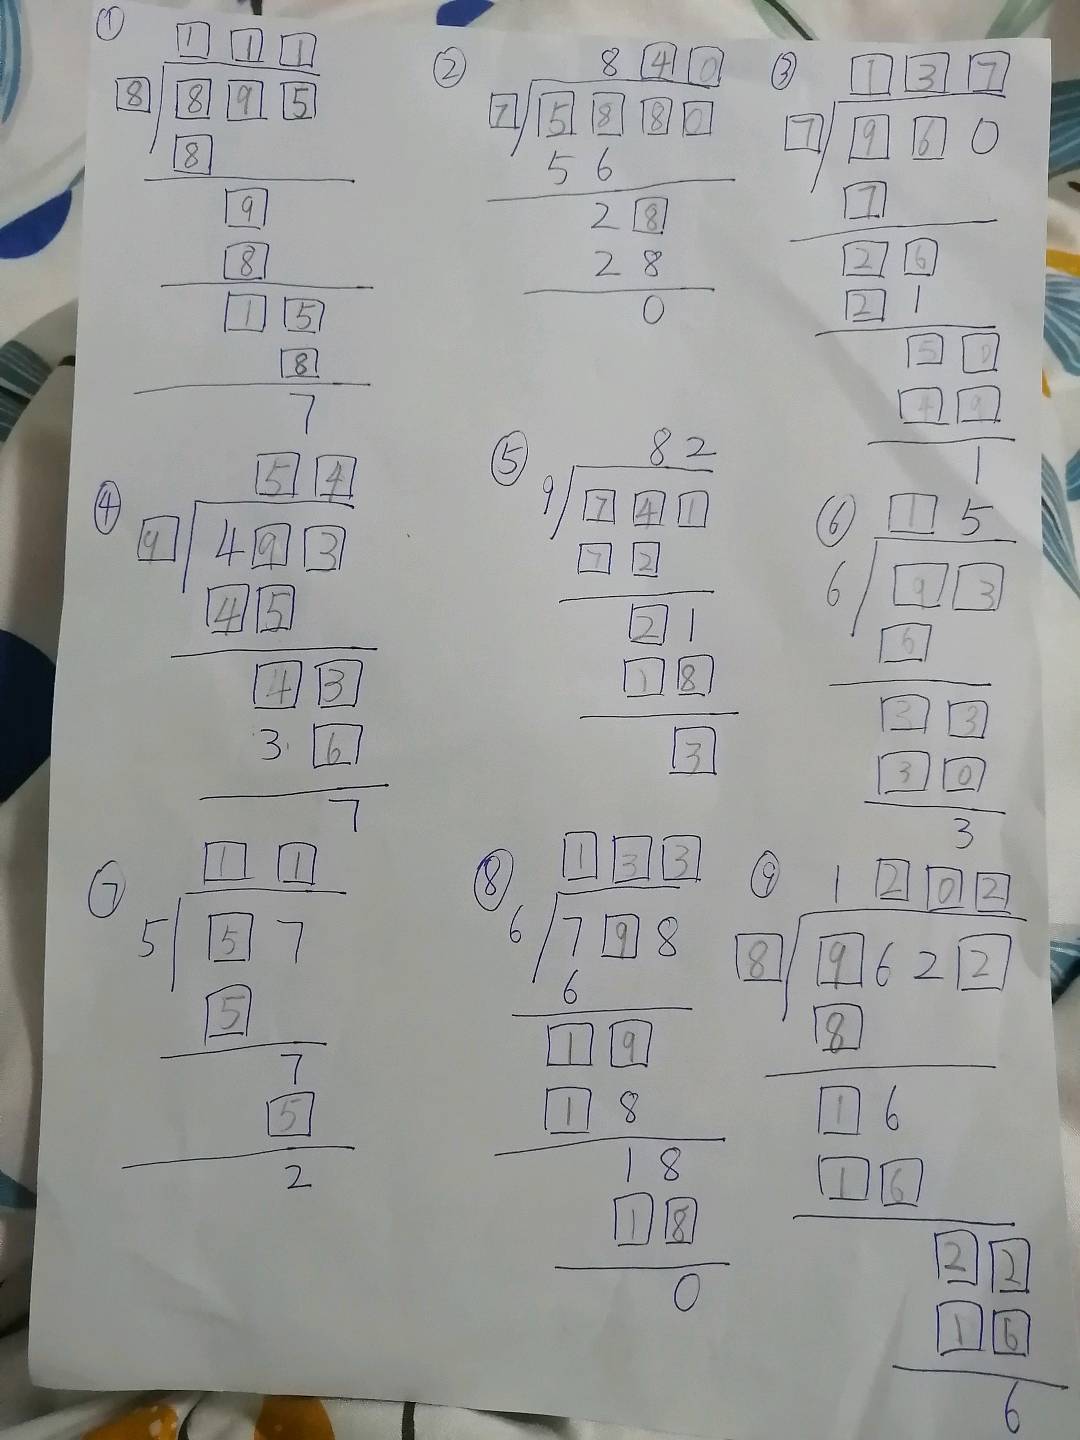 ①
1 1 1
8 8 9 5
8
9
8
1 5
8
7
②
8 4 0
7 5 8 8 0
5 6
2 8
2 8
0
③
1 3 7
7 9 6 0
7
2 6
2 1
5 0
4 9
1
④
5 4
9 4 9 3
4 5
4 3
3 6
7
⑤
8 2
9 7 4 1
7 2
2 1
1 8
3
⑥
1 5
6 9 3
6
3 3
3 0
3
⑦
1 1
5 5 7
5
7
5
2
⑧
1 3 3
6 7 9 8
6
1 9
1 8
1 8
1 8
0
⑨
1 2 0 2
8 9 6 2 2
8
1 6
1 6
2 2
1 6
6